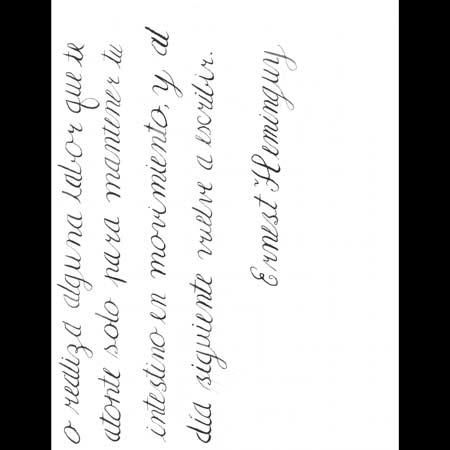 o realiza alguna labor que te
atonte solo para mantener tu
intestino en movimiento, y al
día siguiente vuelve a escribir.
Ernest Heminguy